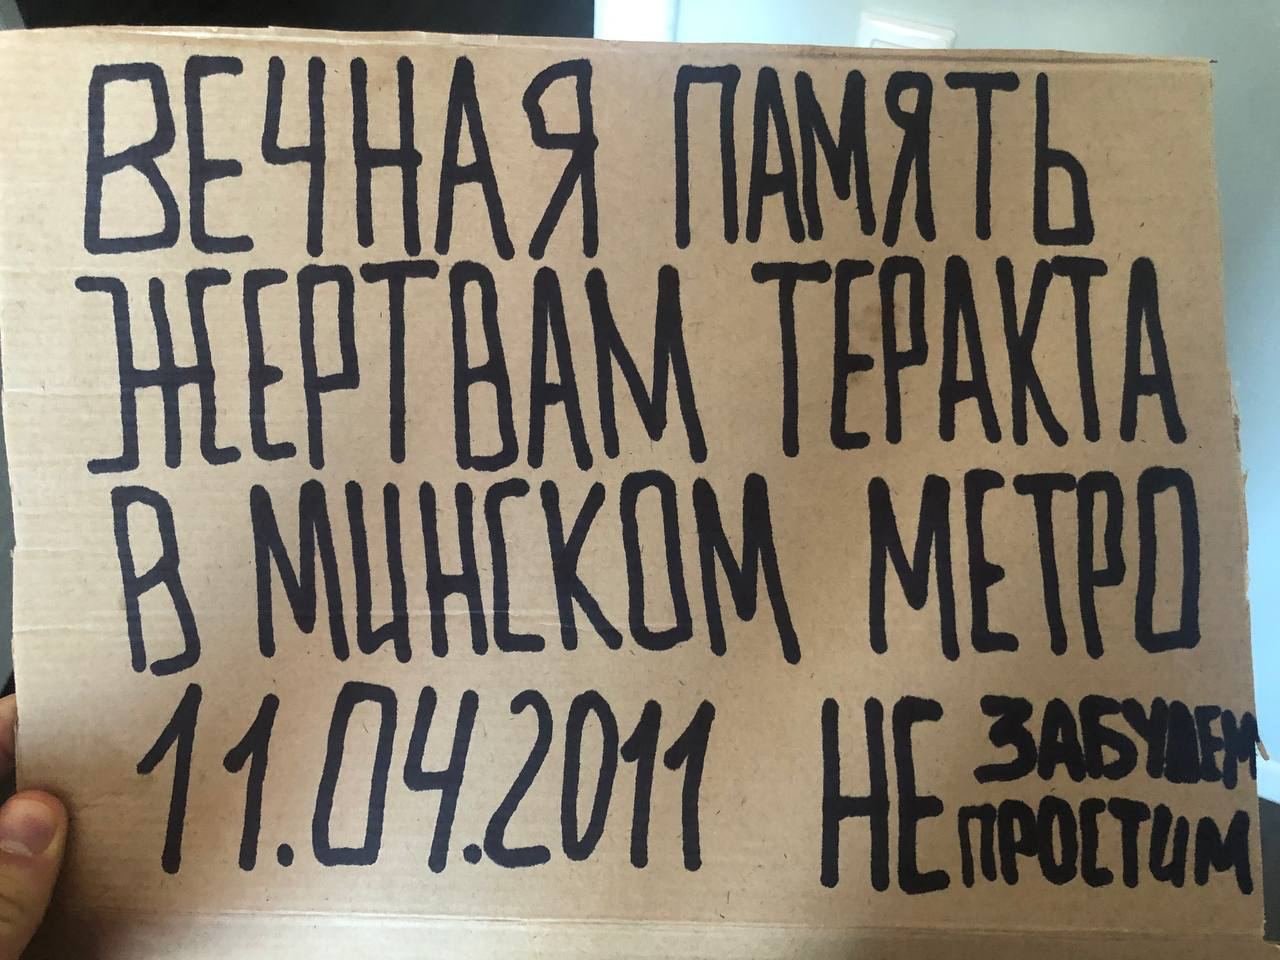 ВЕЧНАЯ ПАМЯТЬ
ЖЕРТВАМ ТЕРАКТА
В МИНСКОМ МЕТРО
11.04.2011 НЕ ЗАБУДЕМ
ПРОСТИМ